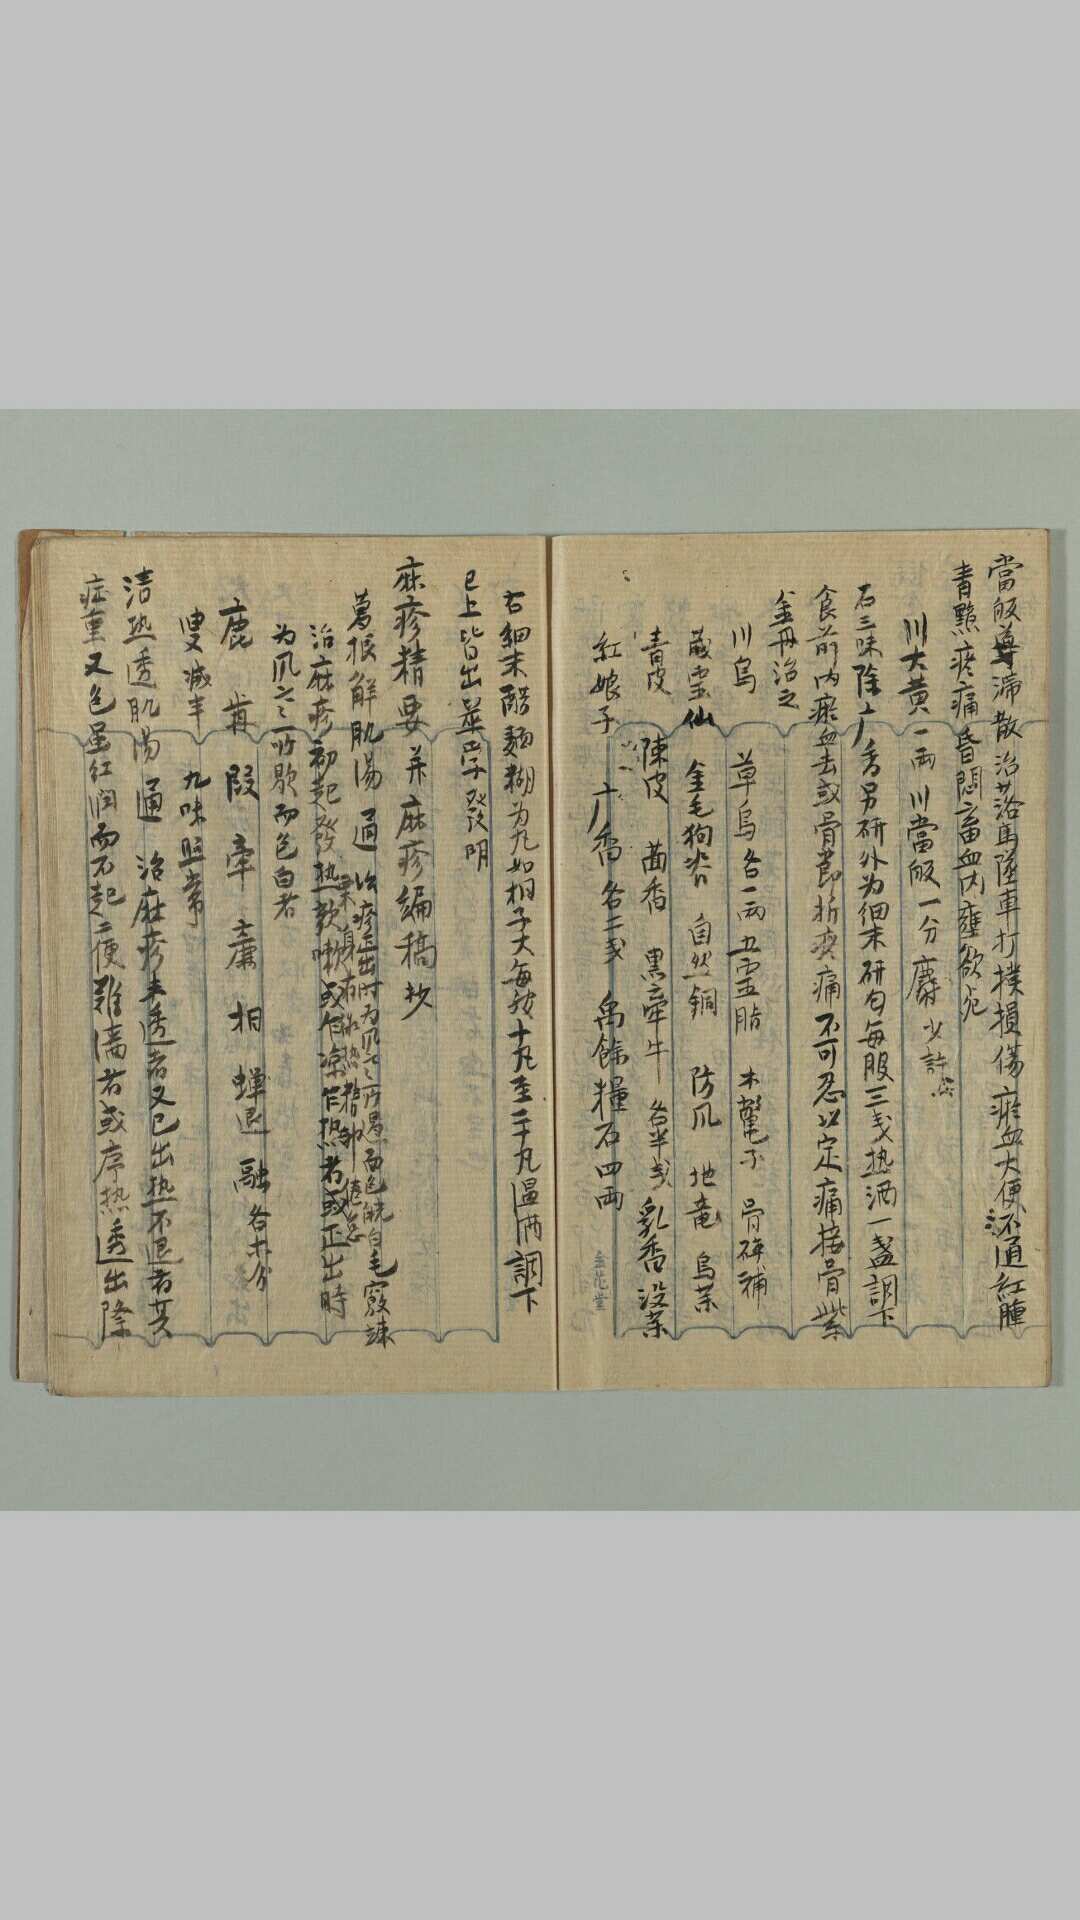 當皈導滞散 治落馬墜車打撲損傷瘀血大便不通紅腫
青黯疼痛昏悶畜血内壅欲死
川大黄一两 川當皈一分 麝少許
右三味除广香另研外为细末研匀每服三戋热酒一盞調下
食前内瘀血去或骨節折疼痛不可忍以定痛接骨紫
金丹治之
川烏 草烏各一两 五霊脂 木鱉子 骨碎補
威霊仙 金毛狗脊 自然銅 防风 地竜 烏茱
青皮 陳皮 茴香 黒牽牛 各半戋 乳香 没茱
紅娘子 广香 各二戋 禹餘糧石四两
右细末醋麺糊为丸如桐子大每 十丸至二十丸温酒調下
已上皆出 發明
麻疹精要并麻疹編稿抄
葛根解肌湯 通 治疹正出时为风之所 面色皖白毛竅竦
栗身有微热精神倦怠
治麻疹初起發热欬嗽或乍凉乍热者或正出時
为风之所歇而色白者
鹿 前 叚 牽 相 蝉退 融 各六分
九味照常
清热透肌湯 通 治麻疹未透者又已出热不退者其
症重又色虽红润而不起二便难 者或 热透出除